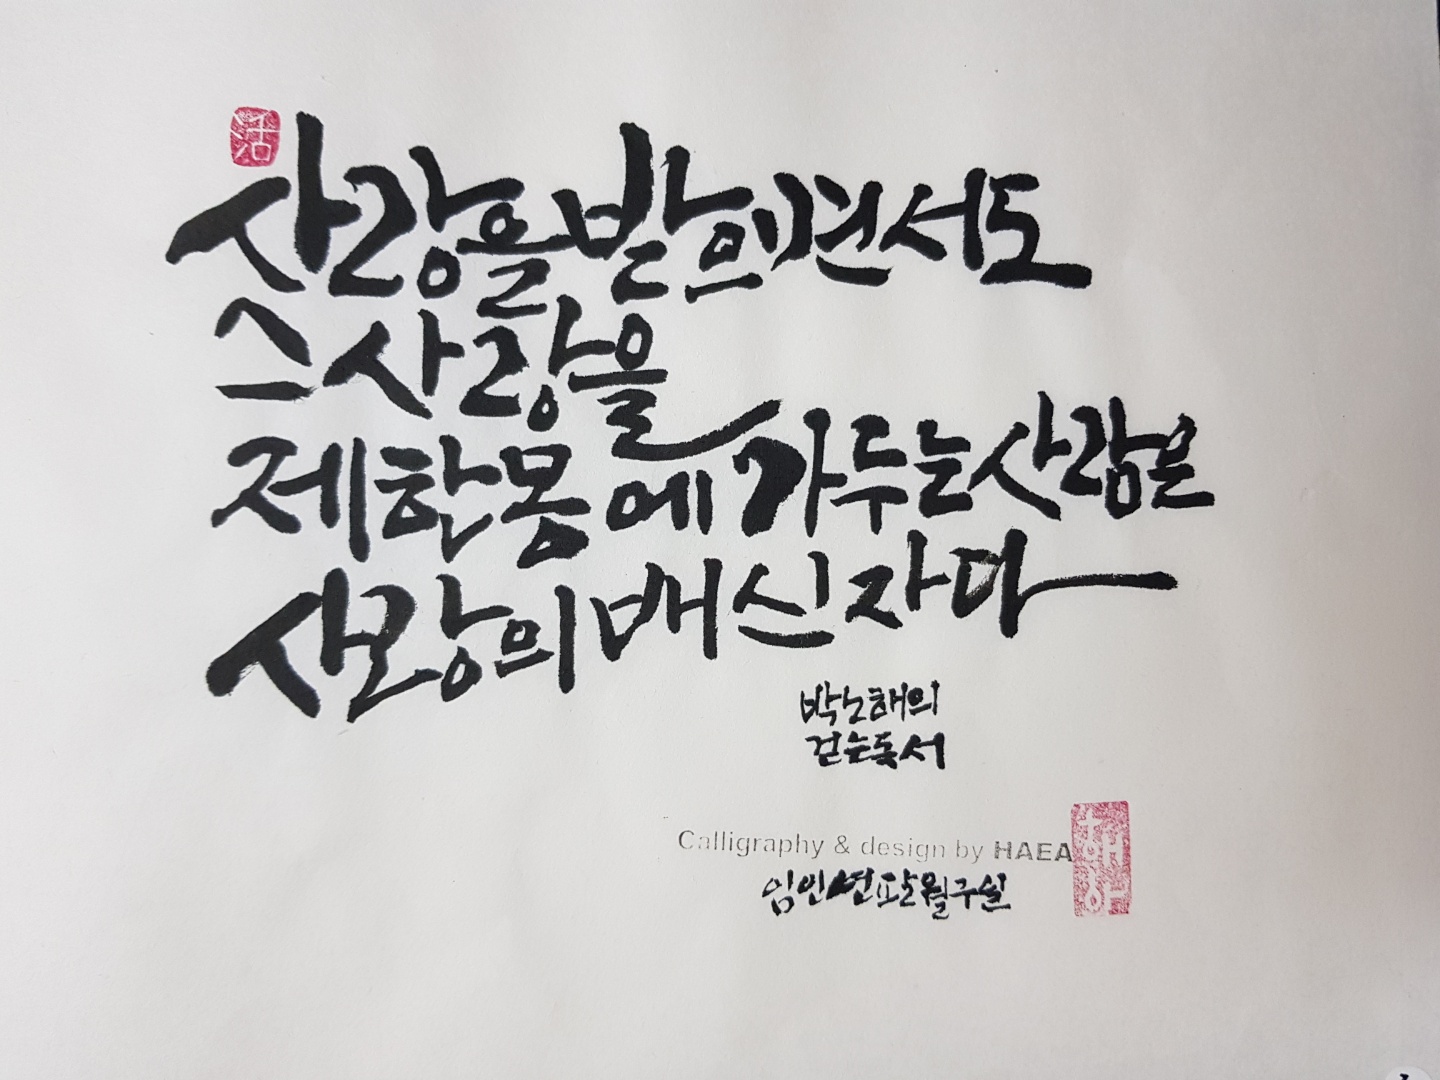 活
사랑을 받으면서도
그 사랑을
제 한 몸에 가두는 사람은
사랑의 배신자다
박노해의
걷는 독서
Calligraphy & design by HAEA
해아
임인년 팔월 구일